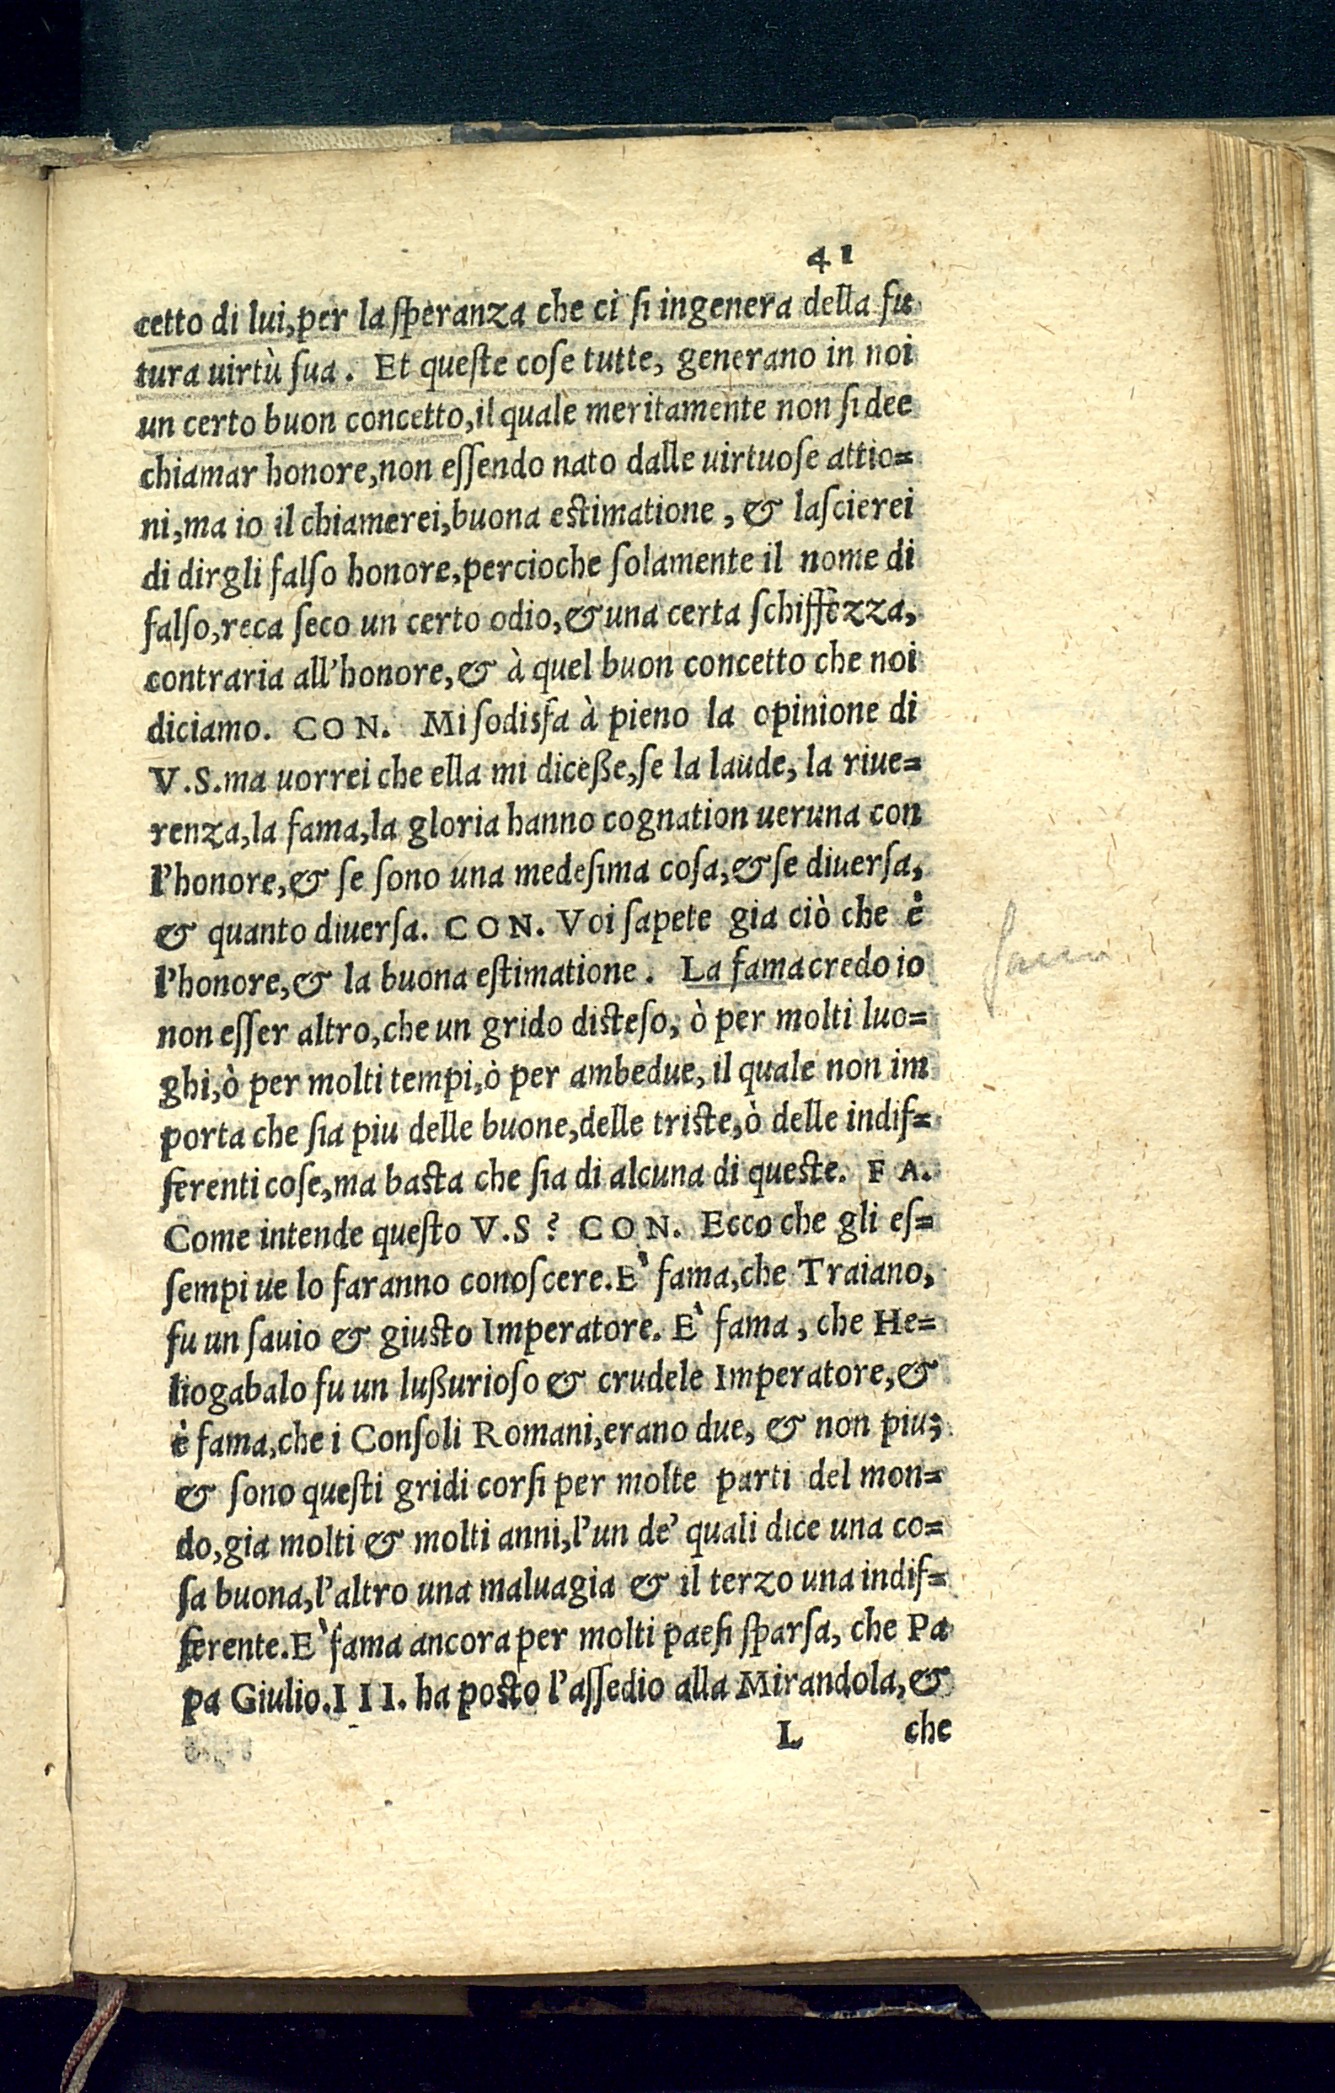 41
cetto di lui, per la speranza che ci si ingenera della fu
tura uirtù sua. Et queste cose tutte, generano in noi
un certo buon concetto, il quale meritamente non si dee
chiamar honore, non essendo nato dalle uirtuose attio=
ni, ma io il chiamerei, buona estimatione, & lascierei
di dirgli falso honore, percioche solamente il nome di
falso, reca seco un certo odio, & una certa schiffezza,
contraria all'honore, & à quel buon concetto che noi
diciamo. CON. Mi sodisfa à pieno la opinione di
V.S. ma uorrei che ella mi diceße, se la laude, la riue=
renza, la fama, la gloria hanno cognation ueruna con
l'honore, & se sono una medesima cosa, & se diuersa,
& quanto diuersa. CON. Voi sapete gia ciò che è
l'honore, & la buona estimatione. La fama credo io
non esser altro, che un grido disteso, ò per molti luo=
ghi, ò per molti tempi, ò per ambedue, il quale non im
porta che sia piu delle buone, delle triste, ò delle indif=
ferenti cose, ma basta che sia di alcuna di queste. FA.
Come intende questo V.S? CON. Ecco che gli es=
sempi ue lo faranno conoscere. E` fama, che Traiano,
fu un sauio & giusto Imperatore. E` fama, che He=
liogabalo fu un lußurioso & crudele Imperatore, &
è fama, che i Consoli Romani, erano due, & non piu;
& sono questi gridi corsi per molte parti del mon=
do, gia molti & molti anni, l'un de' quali dice una co=
sa buona, l'altro una maluagia & il terzo una indif=
ferente. E` fama ancora per molti paesi sparsa, che Pa
pa Giulio. III. ha posto l'assedio alla Mirandola, &
L che
fama